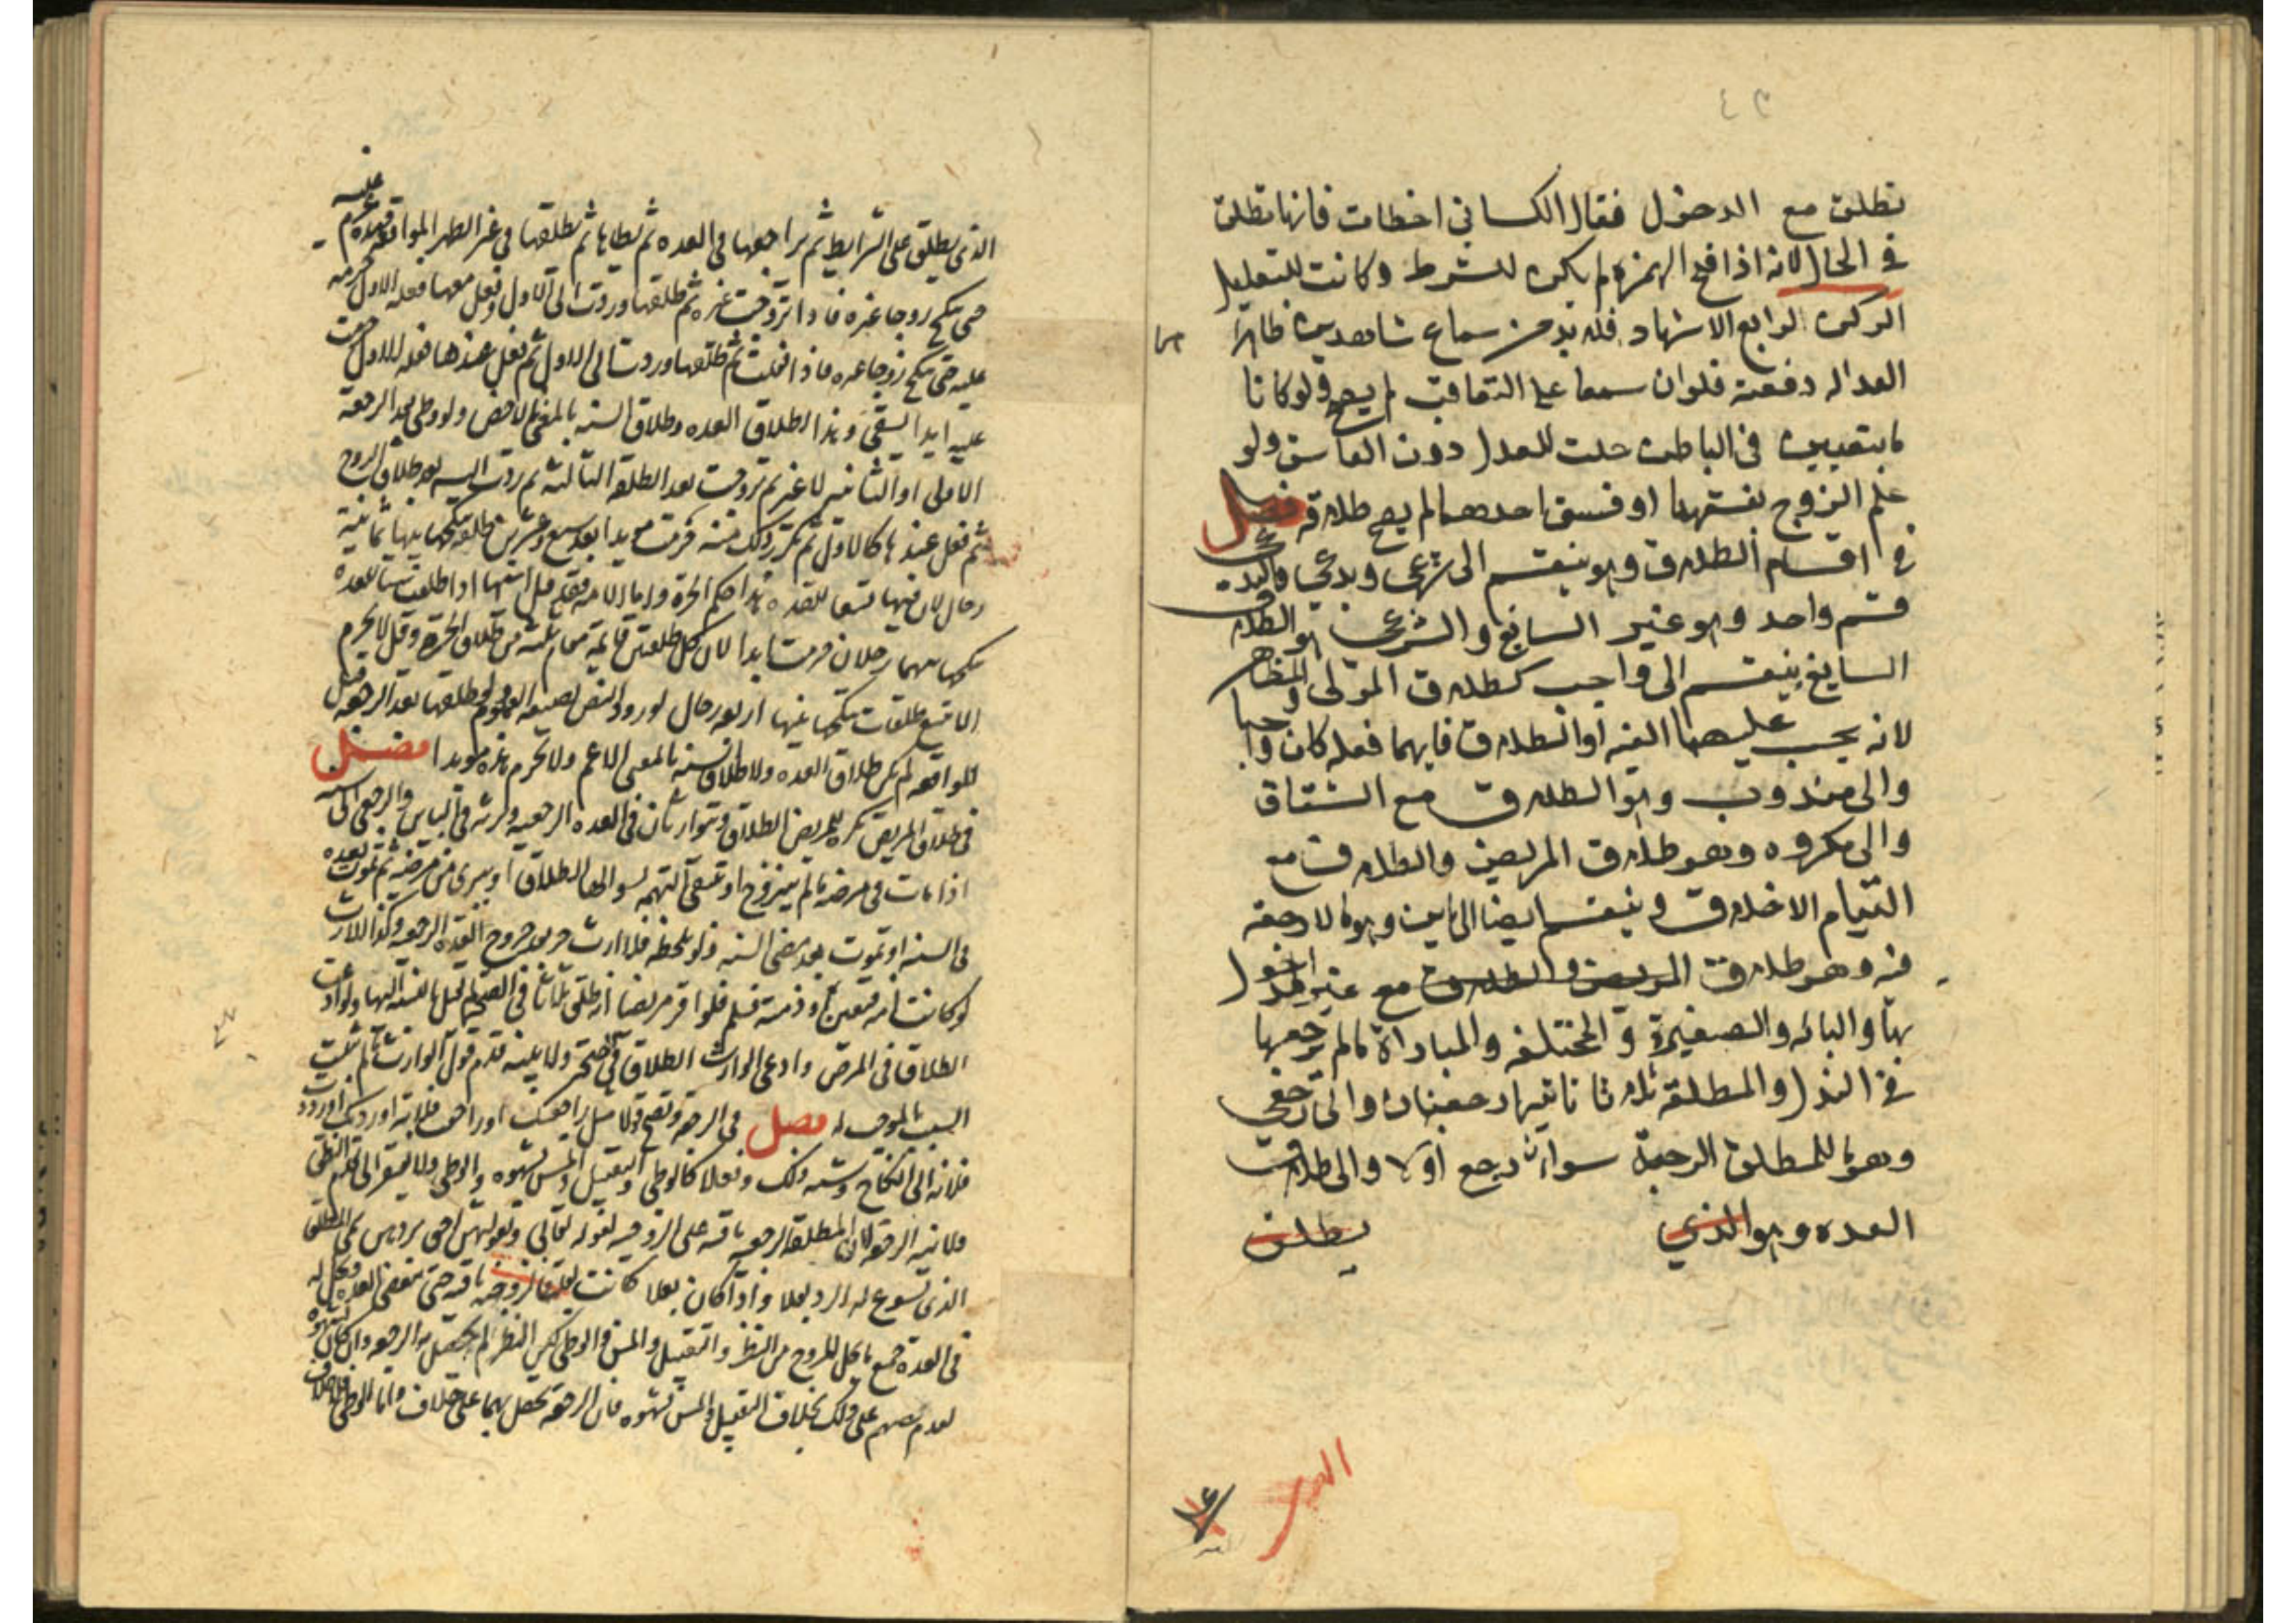 تطلق مع الدخول فقال الكسائي اخطات فانها تطلق
في الحال لانه اذا فتح الهمزه لم يكن للشرط وكانت للتعليل
الركن الرابع الاشهاد فلا بد من سماع شاهدين ظاهرا
العداله دفعة فلو ان سمعا على التعاقب لم يصح ولو كانا
في الباطن حلت للعدل دون الفاسق ولو
علم الزوج بفسقهما او فسق احدهما لم يصح طلاقه فصل
في اقسام الطلاق وهو ينقسم الى شرعي وبدعي والبدعي
قسم واحد وهو غير السايغ والشرعي هو الطلاق
السايغ ينقسم الى واجب كطلاق المولى والمظاهر
لانه يجب عليهما الفئه او الطلاق فايهما فعله كان واجبا
والى مندوب وهو الطلاق مع الشقاق
والى مكروه وهو طلاق المريض والطلاق مع
التيام الاخلاق وينقسم ايضا الى باين وهو ما لا رجعه
فيه وهو طلاق المريض والطلاق مع غير المدخول
بها واليائسه والصغيرة والمختلعه والمباراة ما لم ترجعها
في البذل والمطلقة ثلاثا بينهما رجعتان والى رجعي
وهو ما للمطلق الرجعة سواء رجع او لا والى طلاق
العده وهو الذي يطلق
الذي يطلق على الشرايط ثم يراجعها في العده ثم يطاها ثم يطلقها في غير طهر المواقعه فهذه تحرم عليه
حتى تنكح زوجا غيره فاذا تزوجت غيره ثم طلقها وردت الى الاول وفعل معها فعله الاول حرمت
عليه حتى تنكح زوجا غيره فاذا فعلت ثم طلقها وردت الى الاول ثم فعل عندها فعله الاول حرمت
عليه ابدا وهذا طلاق العده وطلاق السنه بالمعنى الاخص ولو وطى بعد الرجعة
الاولى او الثانيه لا غير ثم تزوجت بعد الطلقه الثالثه ثم ردت اليه بعد طلاق الزوج
ثم فعل عندها كالاول ثم تكرر ذلك منه حرمت مويدا بعد سبع وعشرين طلقه ينكحها بينها ثمانية
رجال لان فيها تسعا للعده هذا حكم الحرة واما الامه فقد قيل انها اذا طلقت ستا للعده
ينكحها بينهما رجلان حرمت ابدا لان كل طلقتين قايمة مقام ثلثه من طلاق الحرة وقيل لا تحرم
الا بتسع طلقات ينكحها بينها اربعة رجال لورود النص بصيغه العموم ولو طلقها بعد الرجعه قبل
المواقعه لم يكن طلاق العده ولا طلاق السنه بالمعنى الاعم ولا تحرم هذه مويدا فصل
في طلاق المريض تكره للمريض الطلاق ويتوارثان في العده الرجعيه وترثه في الباين والرجعي الى سنه
اذا مات في مرضه ما لم يتزوج او تنتفي التهمه بسوالها الطلاق او يبرى من مرضه ثم تموت بعده
في السنه او تموت بعد مضى السنه ولو بلحظه فلا ارث بعد خروج العده الرجعيه وكذا لا ارث
لو كانت امه او ذمية فلو اقر مريضا انه طلق ثلاثا في الصحه لم يقبل بالنسبه اليها ولو ادعت
الطلاق في المرض وادعى الوارث الطلاق في صحته ولا بينه قدم قول الوارث ما لم يثبت
السبب الموجب له فصل في الرجعة وتصح قولا مثل راجعتك او راجعت فلانه او رددتك او رددت
فلانه الى النكاح وشبه ذلك وفعلا كالوطي والتقبيل والمس بشهوه والوطي ولا يفتقر الى تقدم النطق
ولا نيه الرجعه لان المطلقه الرجعيه باقيه على الزوجيه لقوله تعالى وبعولتهن احق بردهن سمى المطلق
الذي يسوغ له الرد بعلا واذا كان بعلا كانت زوجه باقيه حتى تنقضي العده ويحل له
في العده جميع ما يحل للزوج من النظر والتقبيل والمس والوطي لكن النظر لم يحصل به الرجعه وان كان بشهوه
لعدم نصهم على ذلك بخلاف التقبيل والمس بشهوه فان الرجعة تحصل بهما على خلاف واما الوطي فلا خلاف